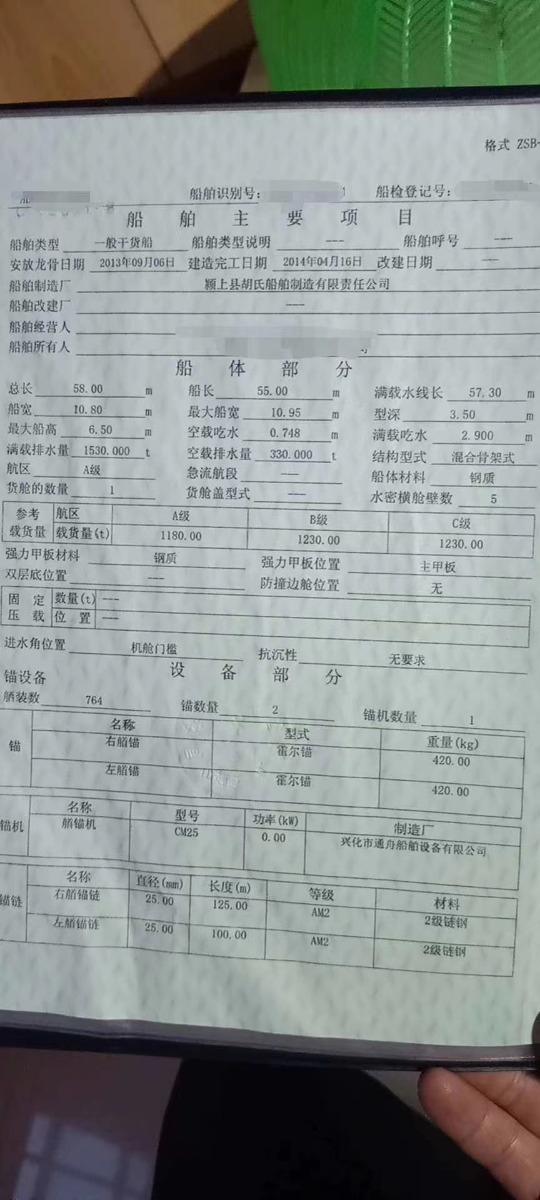 格式 ZSB-
船舶识别号: 船检登记号:
船舶主要项目
船舶类型 一般干货船 船舶类型说明 --- 船舶呼号 ---
安放龙骨日期 2013年09月06日 建造完工日期 2014年04月16日 改建日期 ---
船舶制造厂 颍上县胡氏船舶制造有限责任公司
船舶改建厂 ---
船舶经营人
船舶所有人
船体部分
总长 58.00 m 船长 55.00 m 满载水线长 57.30 m
船宽 10.80 m 最大船宽 10.95 m 型深 3.50 m
最大船高 6.50 m 空载吃水 0.748 m 满载吃水 2.900 m
满载排水量 1530.000 t 空载排水量 330.000 t 结构型式 混合骨架式
航区 A级 急流航段 --- 船体材料 钢质
货舱的数量 1 货舱盖型式 --- 水密横舱壁数 5
参考载货量 航区 A级 B级 C级
载货量(t) 1180.00 1230.00 1230.00
强力甲板材料 钢质 强力甲板位置 主甲板
双层底位置 --- 防撞边舱位置 无
固定压载 数量(t) ---
位置 ---
进水角位置 机舱门槛 抗沉性 无要求
设备部分
锚设备
舾装数 764 锚数量 2 锚机数量 1
锚 名称 型式 重量(kg)
右艏锚 霍尔锚 420.00
左艏锚 霍尔锚 420.00
锚机 名称 型号 功率(kW) 制造厂
艏锚机 CM25 0.00 兴化市通舟船舶设备有限公司
锚链 名称 直径(mm) 长度(m) 等级 材料
右艏锚链 25.00 125.00 AM2 2级链钢
左艏锚链 25.00 100.00 AM2 2级链钢